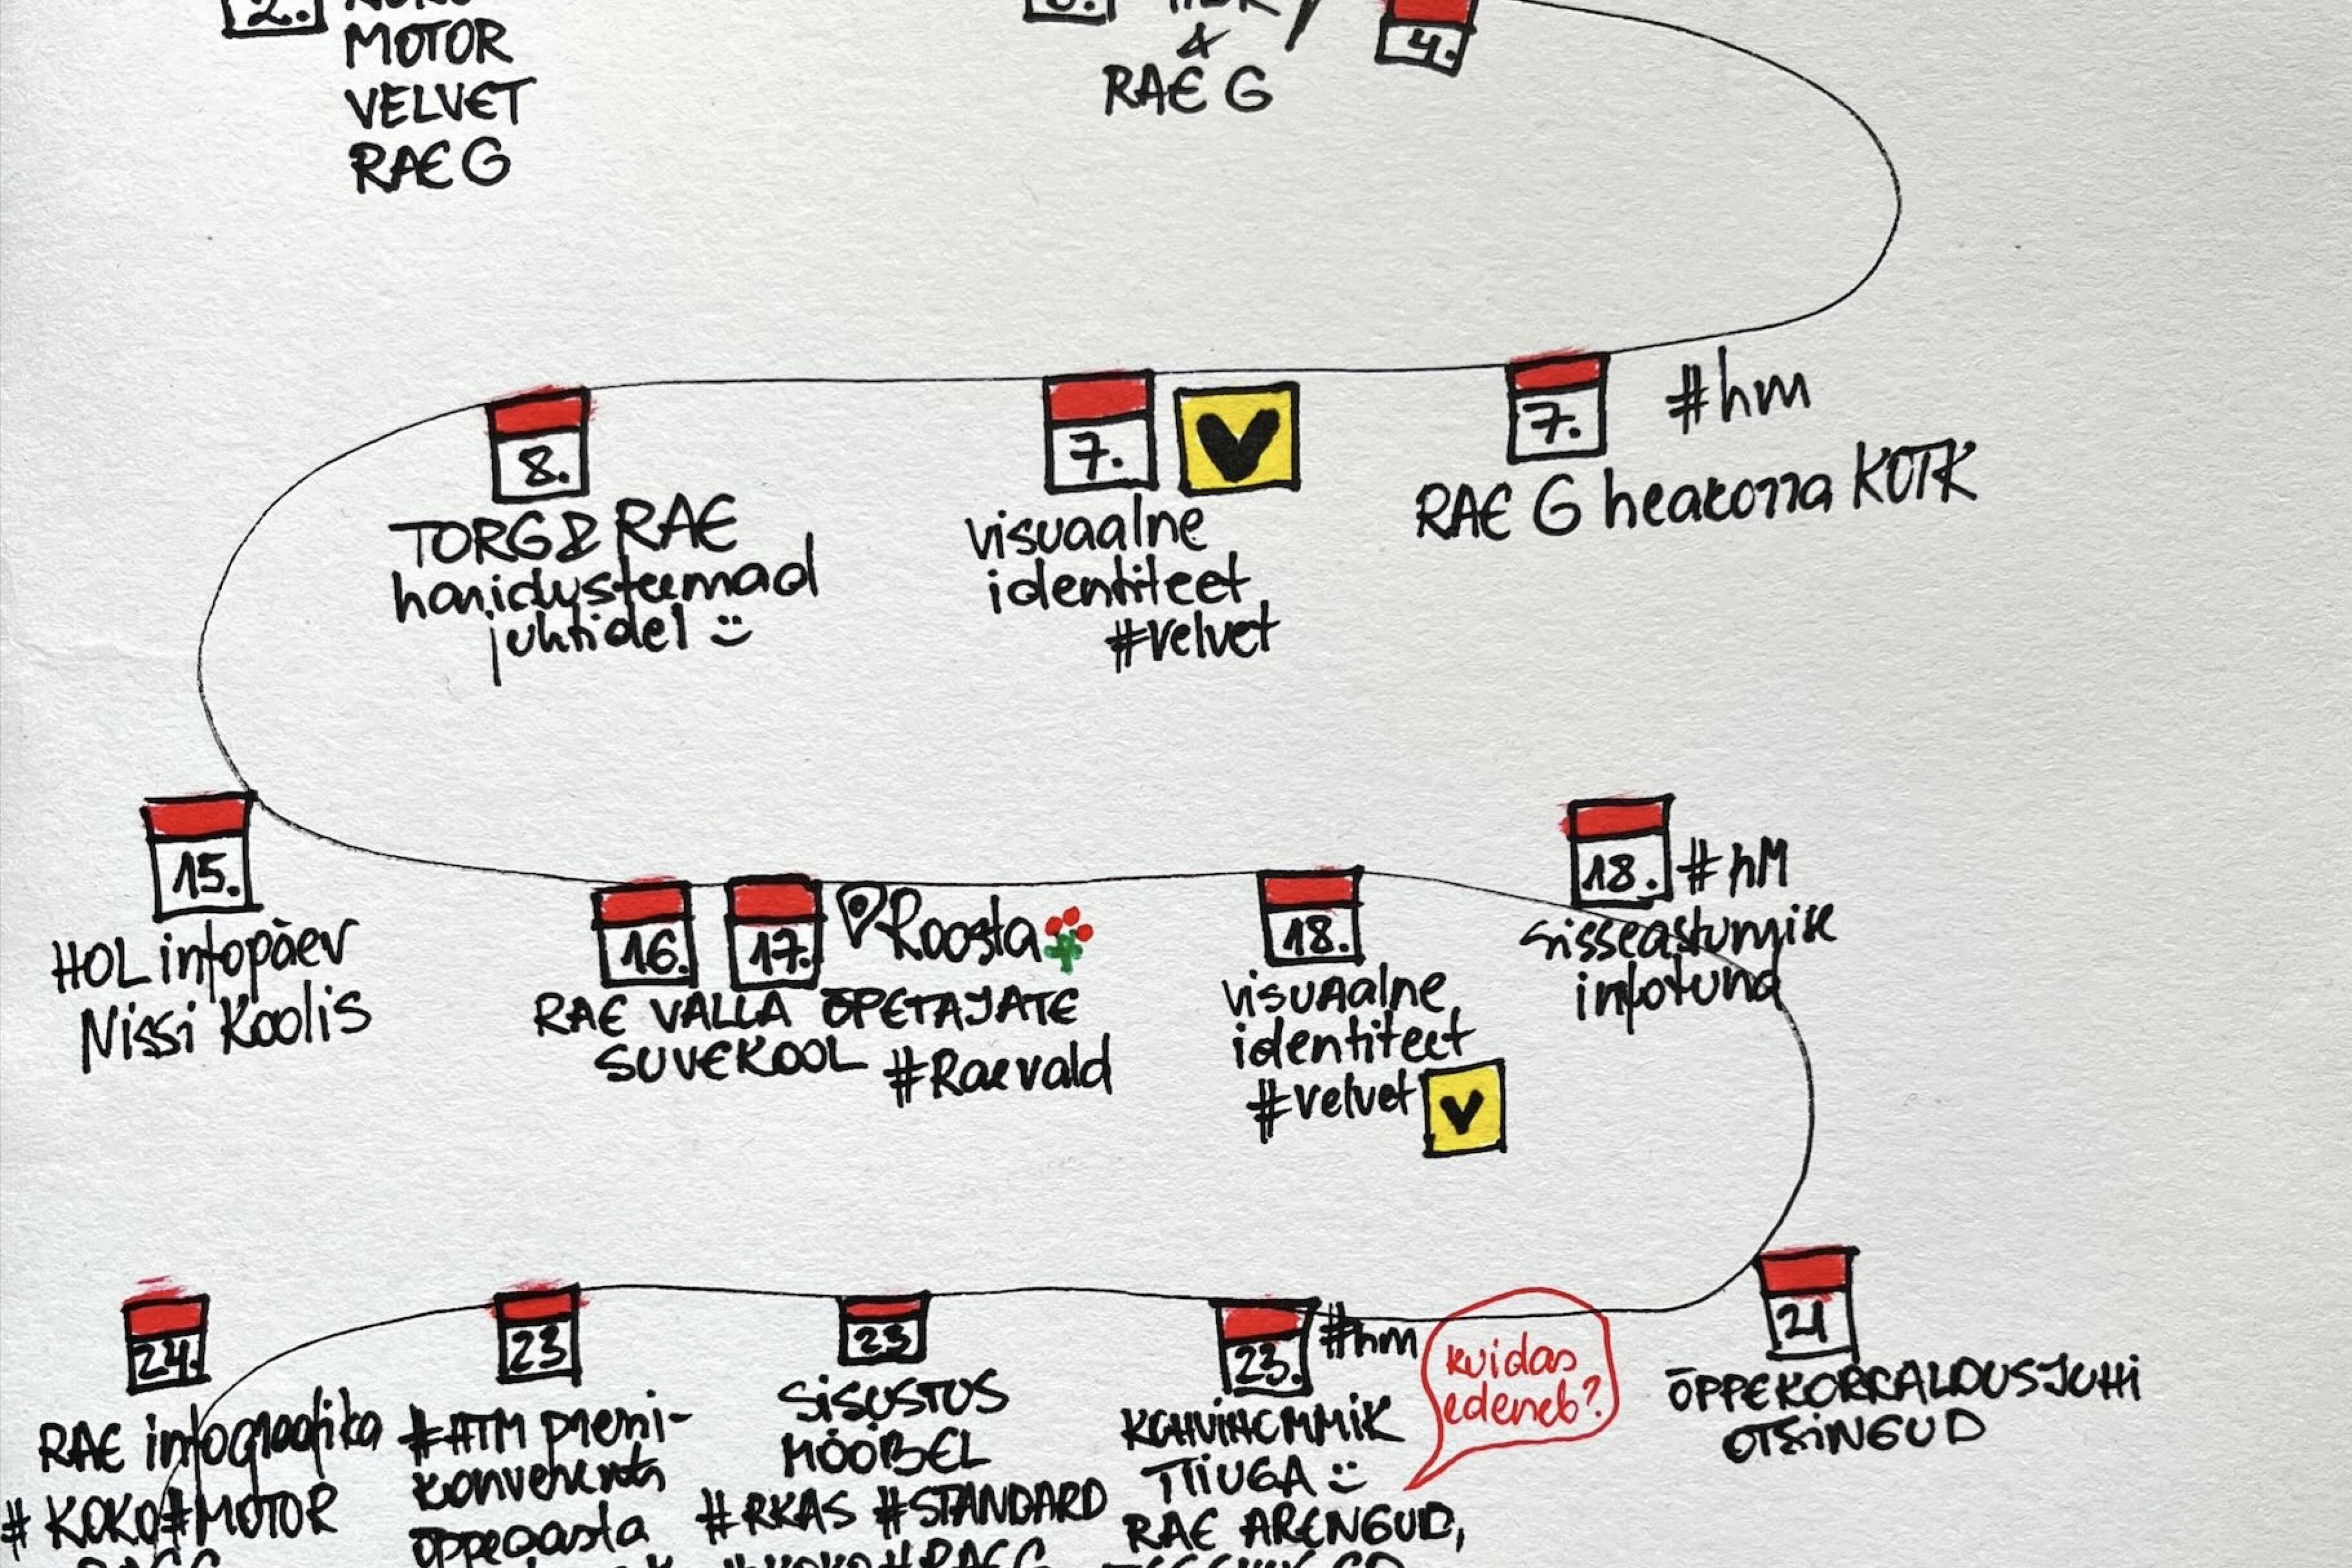 2.
MOTOR
VELVET
RAE G
&
RAE G
4.
8.
TORG & RAE
haridusteemad
juhtidel :)
7.
visuaalne
identiteet
#velvet
7. #hm
RAE G heakorra KOTK
15.
HOL infopäev
Nissi Koolis
16. 17. Roosta
RAE VALLA ÕPETAJATE
SUVEKOOL #Raevald
18.
visuaalne
identiteet
#velvet
18. #hM
sisseastumise
infotund
24.
RAE infograafika
#KOKO #MOTOR
23
#HTM preemi-
konverents
õppeaasta
23
SISUSTUS
MÖÖBEL
#RKAS #STANDARD
#KOKO #RAEG
23. #hm
KOHVIHOMMIK
TIIUGA :)
RAE ARENGUD,
kuidas
edeneb?
21
ÕPPEKORRALDUSJUHI
OTSINGUD